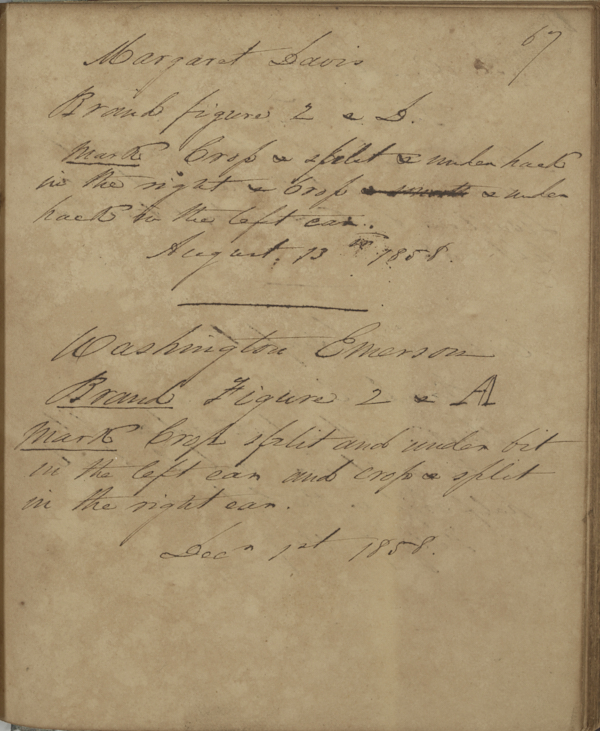 67
Margaret Davis
Brand figure 2 & D.
Mark Crop & split & under hack
in the right & Crop & under
hack in the left ear.
August. 13th 1858.
Washington Emerson
Brand Figure 2 & A
Mark Crop split and under bit
in the left ear and crop & split
in the right ear.
Decr 1st 1858.